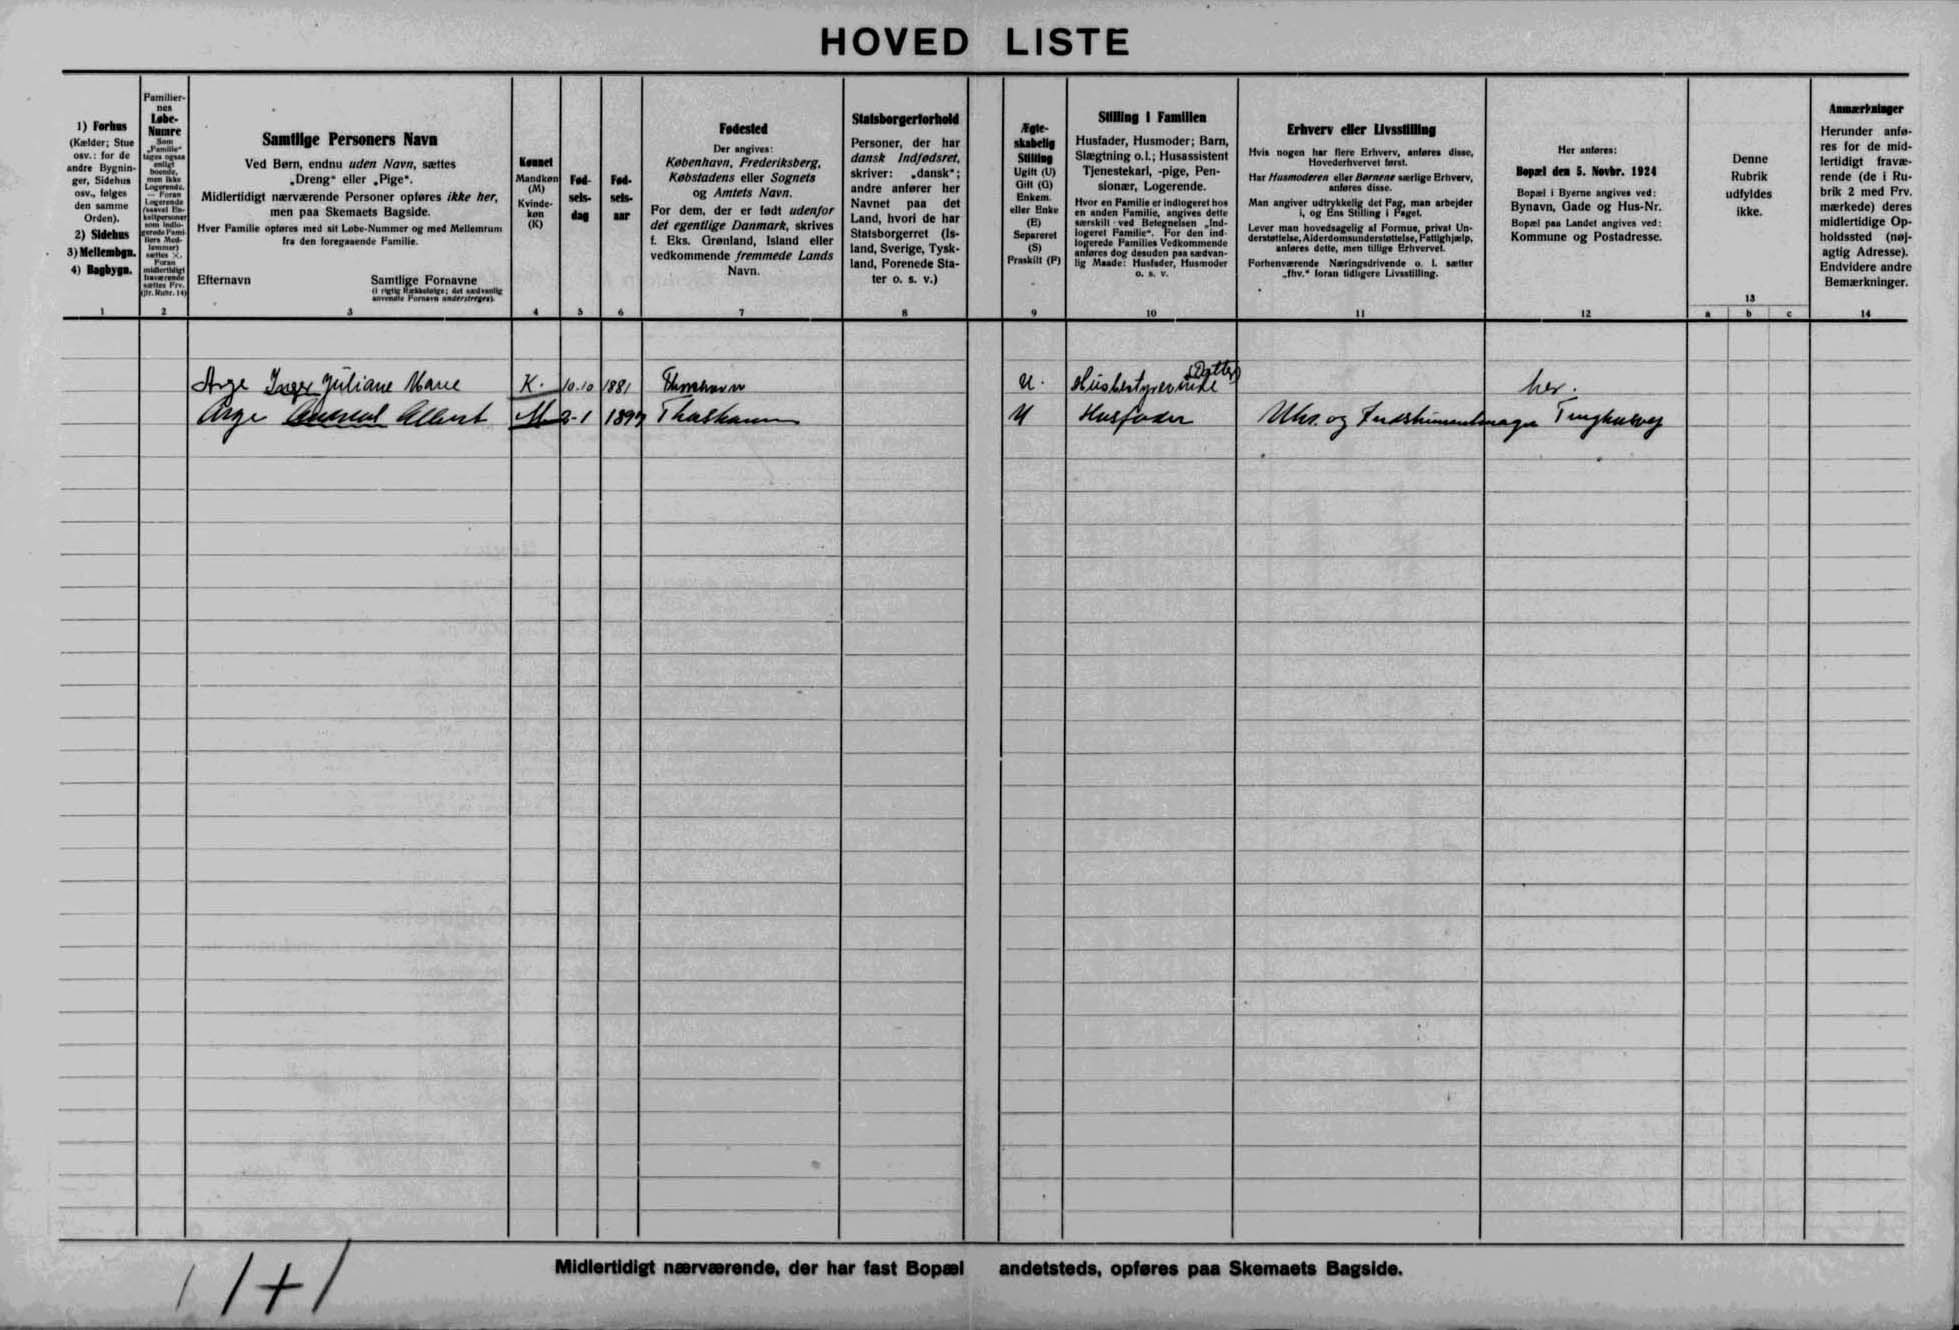 HOVED LISTE
1) Forhus
(Kælder; Stue
osv.: for de
andre Bygnin-
ger, Sidehus
osv., følges
den samme
Orden).
2) Sidehus
3) Mellembgn.
4) Bagbygn.
1
Familier-
nes
Løbe-
Numre
Som
„Familie"
tages ogsaa
enligt
boende,
men ikke
Logerende.
— Foran
Logerende
sættes ×.
Foran
midlertidigt
fraværende
sættes Frv.
(jfr. Rubr. 14)
2
Samtlige Personers Navn
Ved Børn, endnu uden Navn, sættes
„Dreng" eller „Pige".
Midlertidigt nærværende Personer opføres ikke her,
men paa Skemaets Bagside.
Hver Familie opføres med sit Løbe-Nummer og med Mellemrum
fra den foregaaende Familie.
Efternavn
Samtlige Fornavne
(i rigtig Rækkefølge; det sædvanlig
anvendte Fornavn understreges).
3
Kønnet
Mandkøn
(M)
Kvinde-
køn
(K)
4
Fød-
sels-
dag
5
Fød-
sels-
aar
6
Fødested
Der angives:
København, Frederiksberg,
Købstadens eller Sognets
og Amtets Navn.
For dem, der er født udenfor
det egentlige Danmark, skrives
f. Eks. Grønland, Island eller
vedkommende fremmede Lands
Navn.
7
Statsborgerforhold
Personer, der har
dansk Indfødsret,
skriver: „dansk";
andre anfører her
Navnet paa det
Land, hvori de har
Statsborgerret (Is-
land, Sverige, Tysk-
land, Forenede Sta-
ter o. s. v.)
8
Ægte-
skabelig
Stilling
Ugift (U)
Gift (G)
Enkem.
eller Enke
(E)
Separeret
(S)
Fraskilt (F)
9
Stilling i Familien
Husfader, Husmoder; Barn,
Slægtning o.l.; Husassistent
Tjenestekarl, -pige, Pen-
sionær, Logerende.
Hvor en Familie er indlogeret hos
en anden Familie, angives dette
særskilt ved Betegnelsen „Ind-
logeret Familie". For den ind-
logerede Families Vedkommende
anføres dog desuden paa sædvan-
lig Maade: Husfader, Husmoder
o. s. v.
10
Erhverv eller Livsstilling
Hvis nogen har flere Erhverv, anføres disse,
Hovederhvervet først.
Har Husmoderen eller Børnene særlige Erhverv,
anføres disse.
Man angiver udtrykkelig det Fag, man arbejder
i, og Ens Stilling i Faget.
Lever man hovedsagelig af Formue, privat Un-
derstøttelse, Alderdomsunderstøttelse, Fattighjælp,
anføres dette, men tillige Erhvervet.
Forhenværende Næringsdrivende o. l. sætter
„fhv." foran tidligere Livsstilling.
11
Her anføres:
Bopæl den 5. Novbr. 1924
Bopæl i Byerne angives ved:
Bynavn, Gade og Hus-Nr.
Bopæl paa Landet angives ved:
Kommune og Postadresse.
12
Denne
Rubrik
udfyldes
ikke.
13
a b c
Anmærkninger
Herunder anfø-
res for de mid-
lertidigt fravæ-
rende (de i Ru-
brik 2 med Frv.
mærkede) deres
midlertidige Op-
holdssted (nøj-
agtig Adresse).
Endvidere andre
Bemærkninger.
14
Arge Inger Juliane Marie K. 10.10 1881 Thorshavn U. Husbestyrerinde (Datter) her.
Arge Albert M 2-1 Thorshavn U Husfader Uhr. og Tinghusvej
1+1
Midlertidigt nærværende, der har fast Bopæl andetsteds, opføres paa Skemaets Bagside.